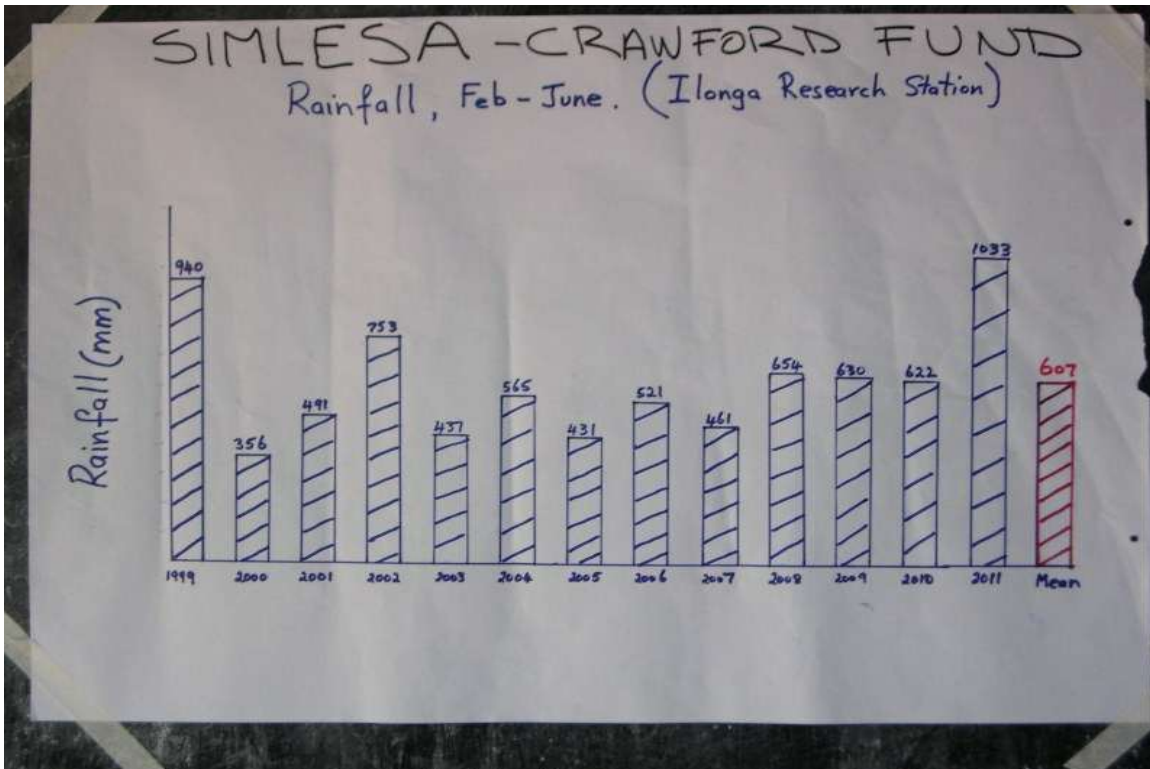 SIMLESA - CRAWFORD FUND
Rainfall, Feb - June. (Ilonga Research Station)
Rainfall (mm)
940
356
491
753
437
565
431
521
461
654
630
622
1033
607
1999 2000 2001 2002 2003 2004 2005 2006 2007 2008 2009 2010 2011 Mean